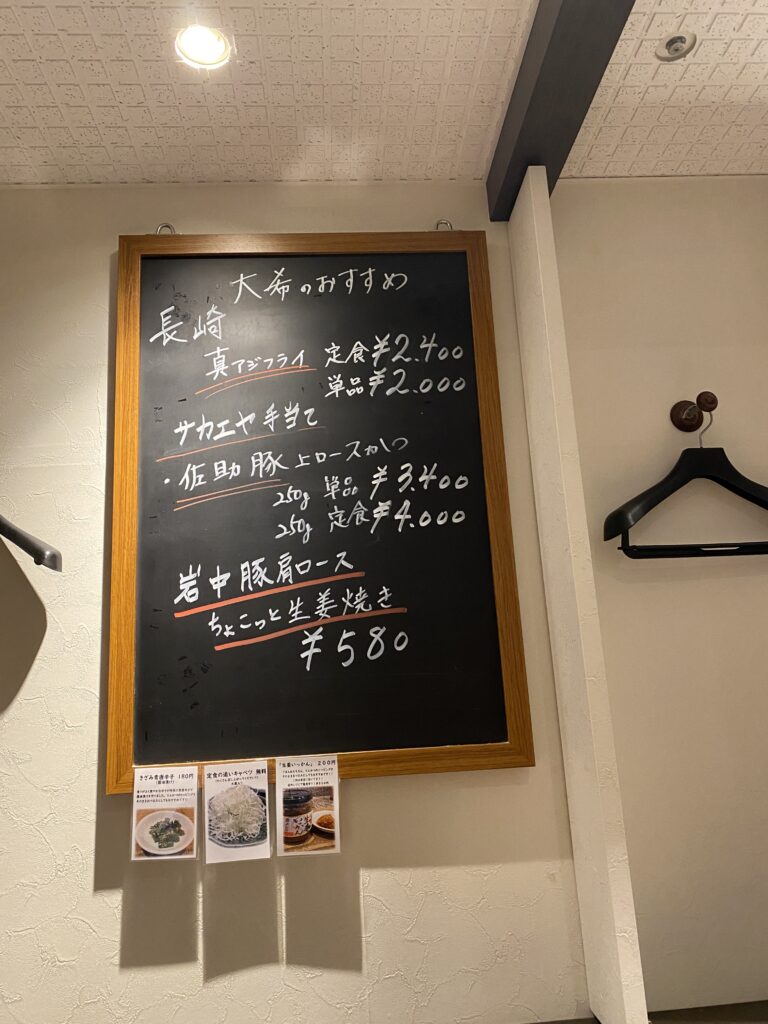 大希のおすすめ
長崎
真アジフライ 定食¥2.400
単品¥2.000
サカエヤ手当て
・佐助豚上ロースかつ
250g 単品 ¥3.400
250g 定食¥4.000
岩中豚肩ロース
ちょこっと生姜焼き
¥580
きざみ青唐辛子 180円
定食の追いキャベツ 無料
「生姜いっかん」 200円